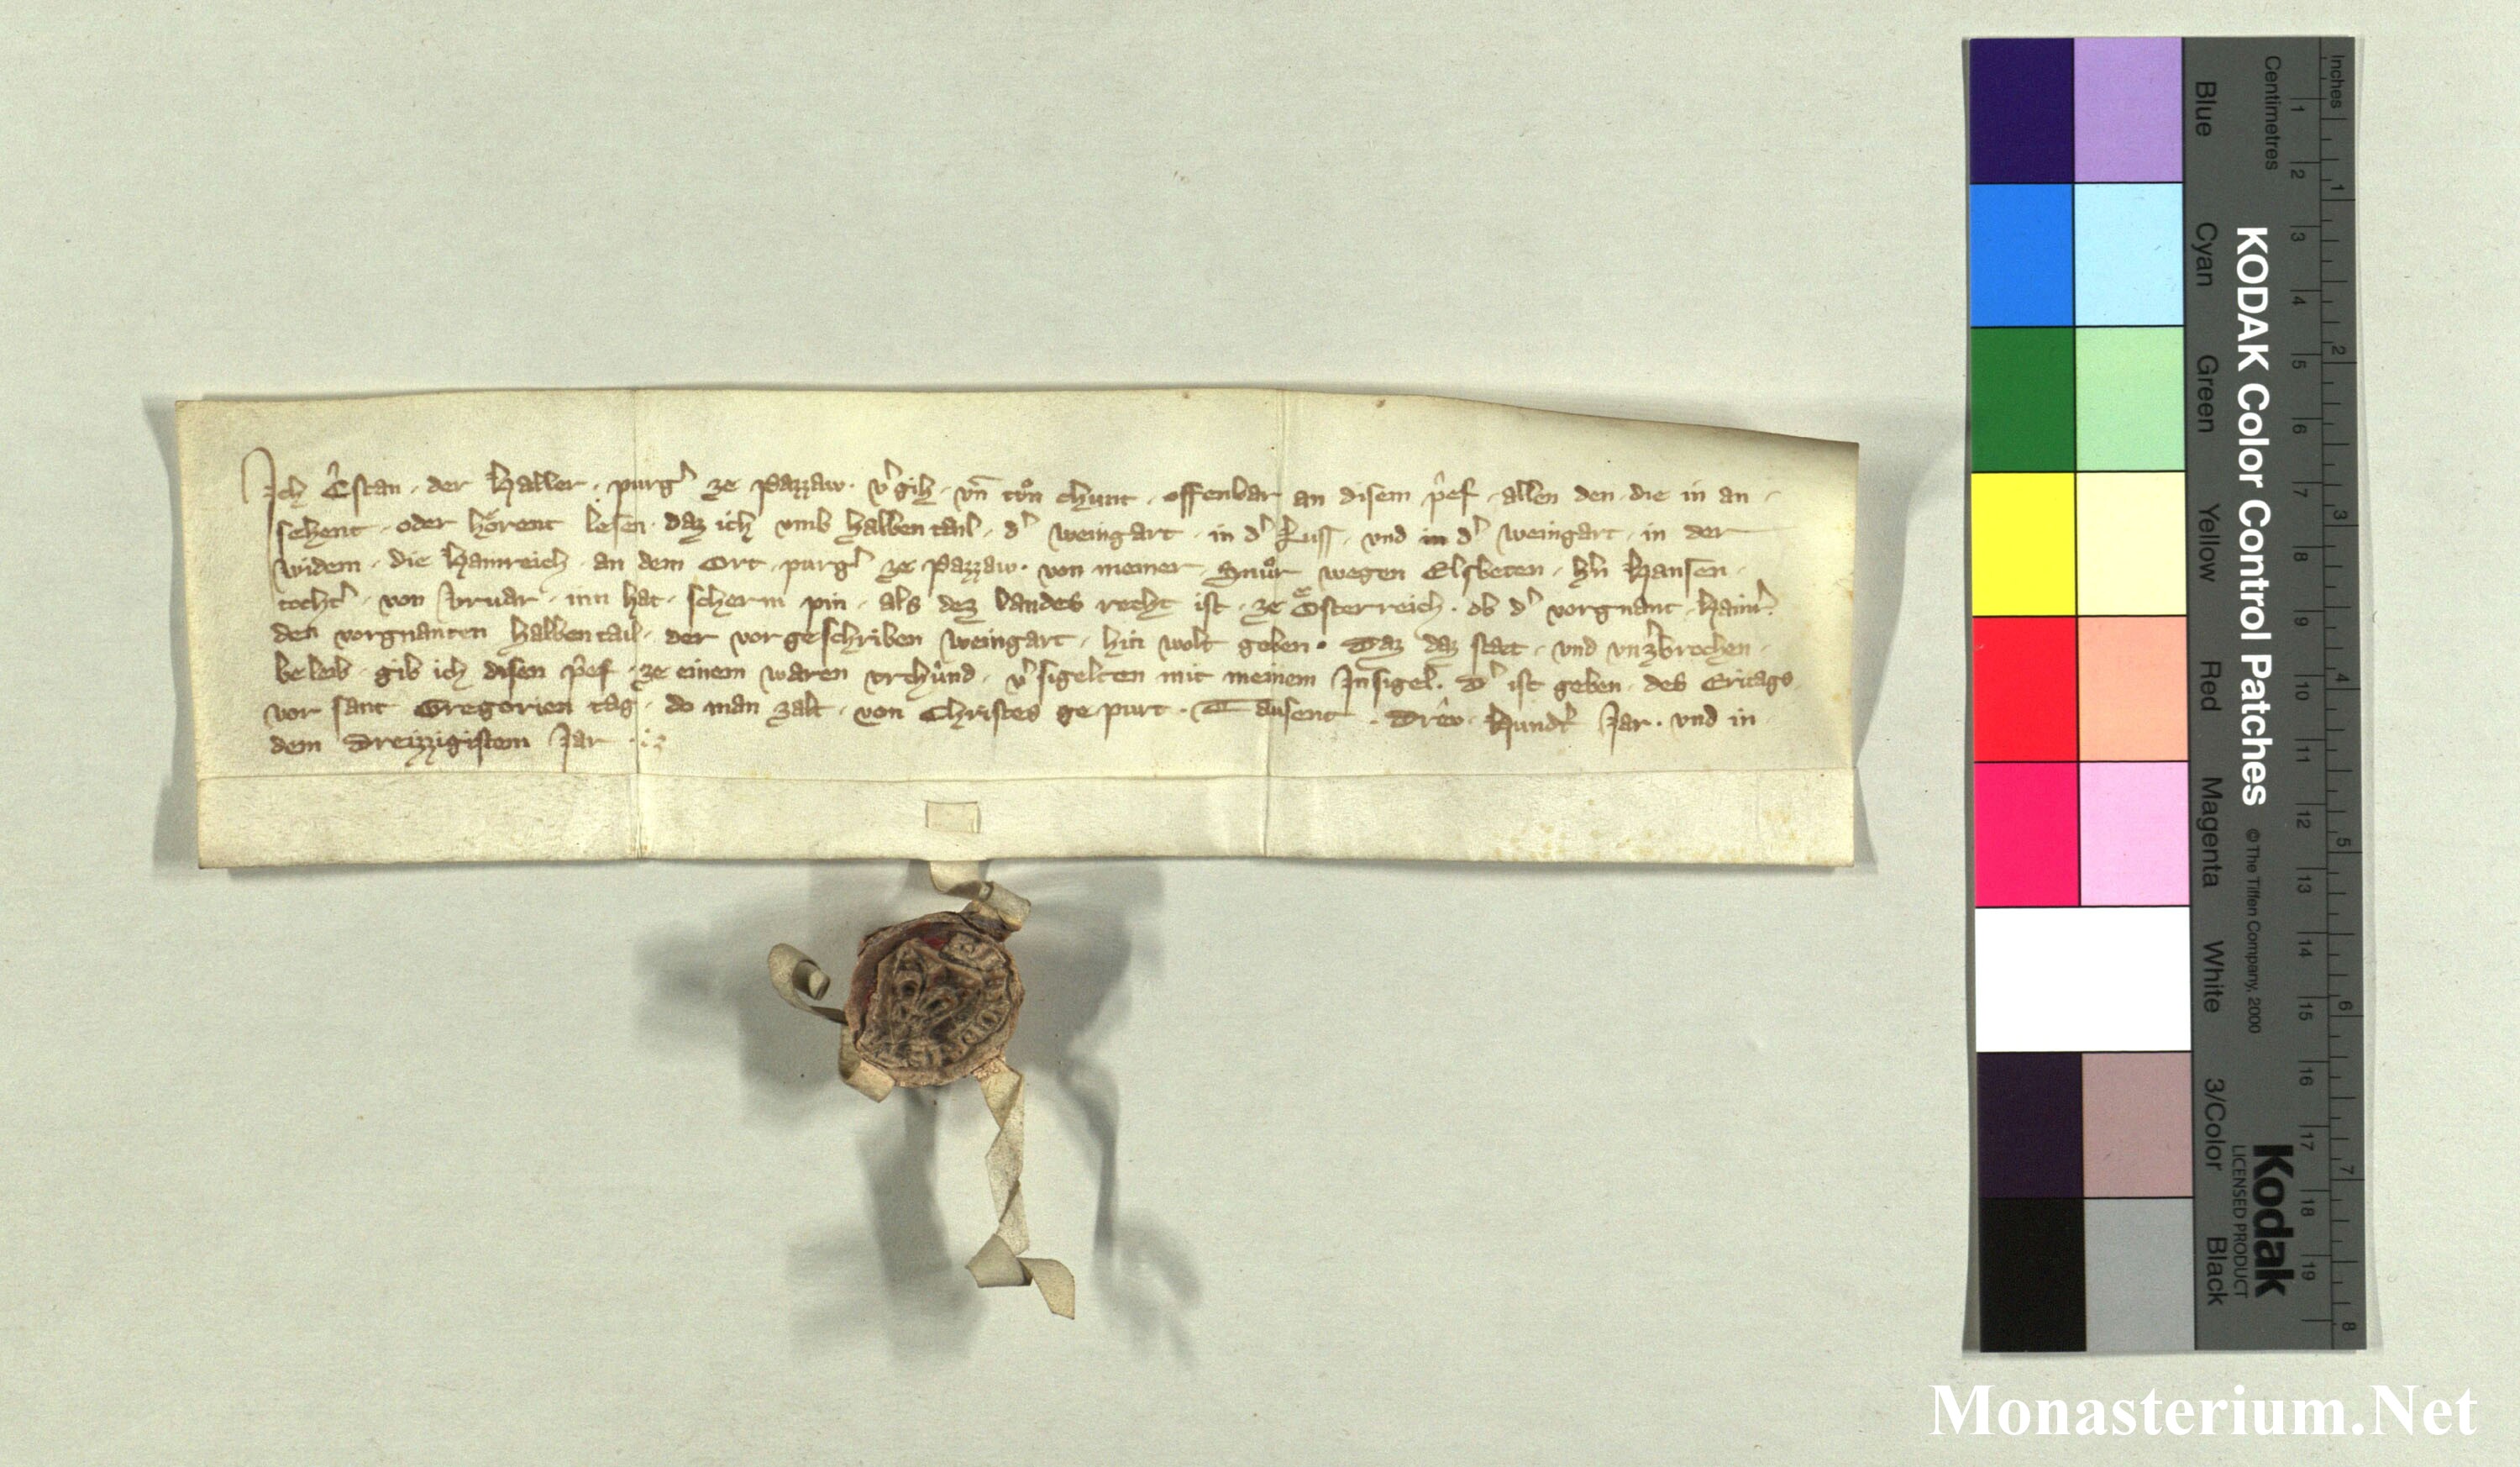 Ich Ĉstan · der Haller · purgˀ ze Pazzaw · vˀgih · vn̄ tůn chunt · offenbar an disem p̂ef · allen den · die in an ·
sehent · oder hoͤrent lesen · daz ich vmb halben tail · dˀ weingart · in dˀ Luss · vnd in dˀ weingart · in der
widem · die Hainreich · an dem Ort · purgˀ ze Pazzaw · von meiner · Snůr wegen Elsbeten · hˀn Hansen ·
tochtˀ · von · inn hat · scherm pin · als dez Landes recht ist · ze Oͤsterreich · ob dˀ vorgnant · Hainrˀ
den vorgnanten halben tail · der vorgeschriben weingart · hin wolt geben · Daz daz staet · vnd vnzˀbrochen ·
beleib · gib ich disen p̂ef · ze einem waren vrchůnd · vˀsigelten mit meinem Insigel · Dˀ ist geben · des Eritags
vor sant Gregorien tag · do man zalt · von Christes gepurt · Tausent · Drêv · Hundtˀ Jar · vnd in
dem Dreizzigistem Jar ·
KODAK Color Control Patches © The Tiffen Company, 2000
Kodak
LICENSED PRODUCT
Blue Cyan Green Yellow Red Magenta White 3/Color Black
Centimetres 1 2 3 4 5 6 7 8 9 10 11 12 13 14 15 16 17 18 19
Inches 1 2 3 4 5 6 7 8
Monasterium.Net